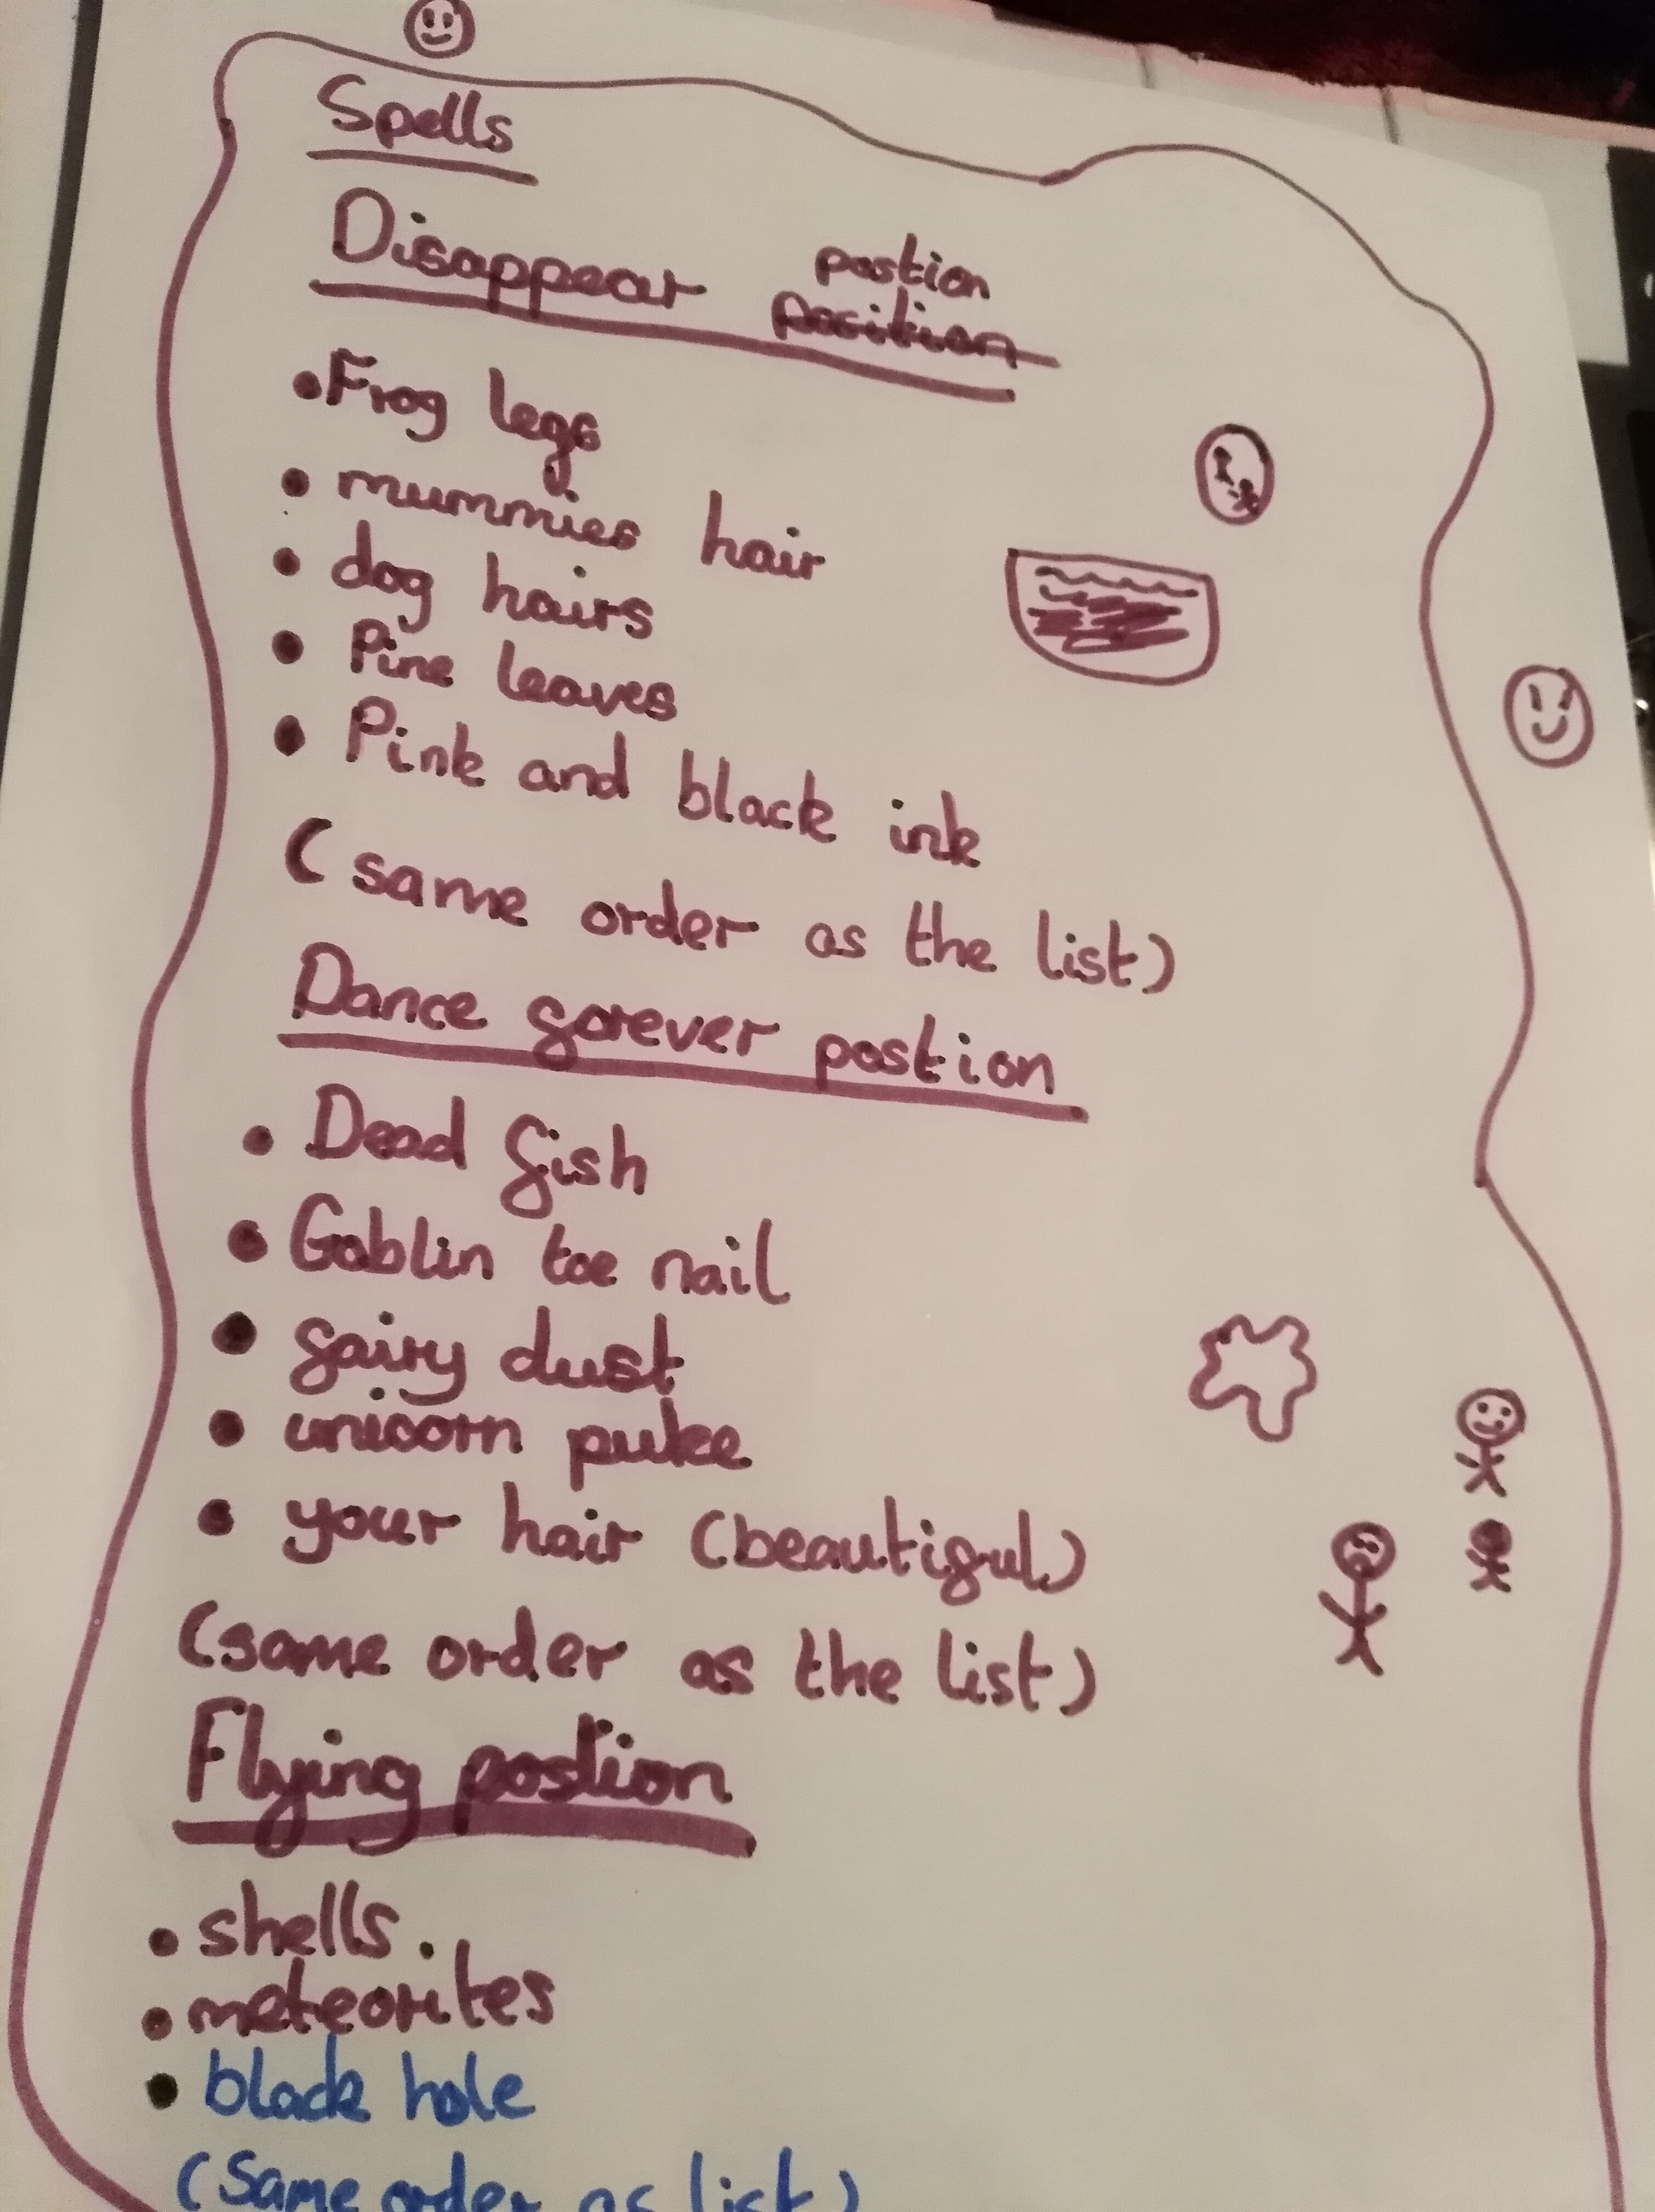 Spells
Disappear postion
position
• Frog legs
• mummies hair
• dog hairs
• Pine leaves
• Pink and black ink
(same order as the list)
Dance forever postion
• Dead fish
• Goblin toe nail
• fairy dust
• unicorn puke
• your hair (beautiful)
(same order as the list)
Flying postion
• shells.
• meteorites
• black hole
(Same order as list)